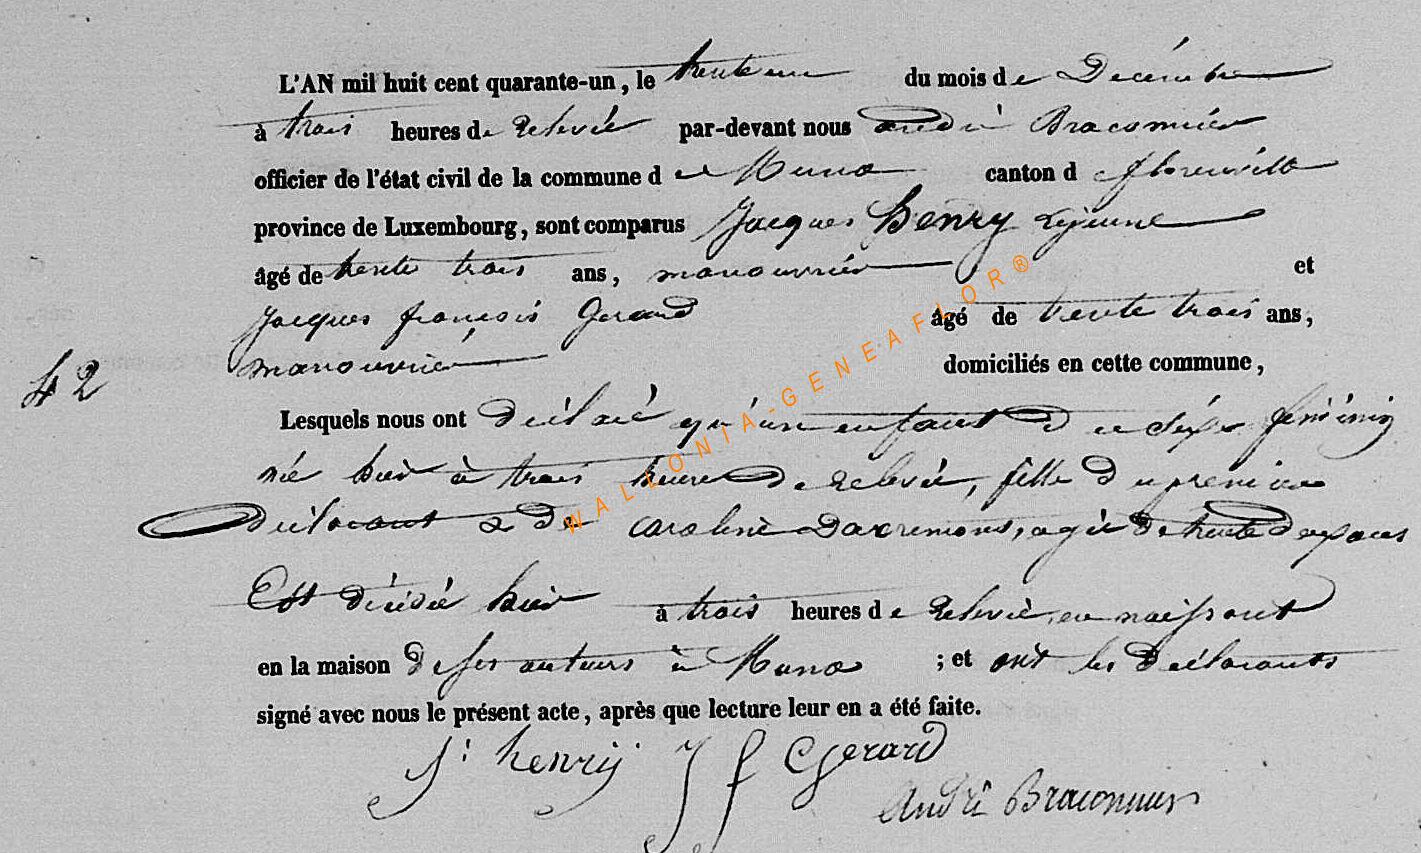 L'AN mil huit cent quarante-un, le trente un du mois de Décembre
à trois heures de Relevée par-devant nous andré Braconnier
officier de l'état civil de la commune de Muno canton de florenville
province de Luxembourg, sont comparus Jacques henry Lejeune
âgé de trente trois ans, manouvrier et
Jacques françois Gerard âgé de trente trois ans,
manouvrier domiciliés en cette commune,
42
Lesquels nous ont déclaré qu'un enfant du sexe féminin
née hier à trois heure de relevée, fille du premier
déclarant & de caroline agée de trente deux ans
Est décédée hier à trois heures de Relevée, en naissant
en la maison de ses auteurs à Muno ; et ont les déclarants
signé avec nous le présent acte, après que lecture leur en a été faite.
J: henrÿ J f Gerard
André Braconnier
WALLONIA-GENEAFLOR®